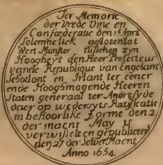 Ter Memorie
der Vrede Unie en
Confœderatie den 15 April
Solemnelick gesloten tot
West Munster tusschen Zyn
Hoogheyt den Heer Protecteur
vande Republique van Engelant
Schotlant en Irlant ter eener
ende Hoochmogende Heeren
Staten generael der Andere
Zyde
in behoorlicke Forme den 2
der maent May
verwisselt en gepubliceert
den 27 der selver Maent
Anno 1654